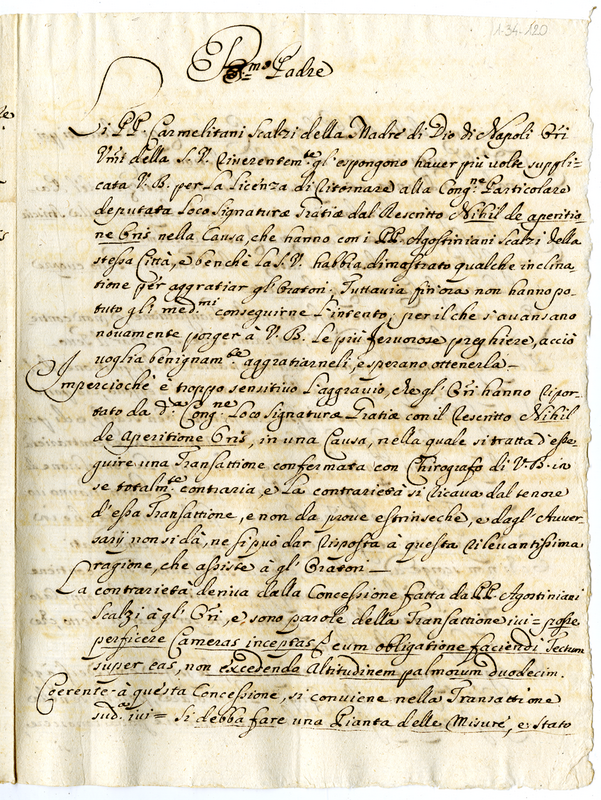 1-34-120
B.mo Padre
Li PP. Carmelitani Scalzi della Madre di Dio di Napoli Ori
Vmi della S. V. riverentem.te gl'espongono haver più volte suppli=
cata V. B. per la licenza di ritornare alla Cong.ne Particolare
deputata loco Signaturæ Gratiæ dal Rescritto Nihil de aperitio
ne Oris nella Causa, che hanno con i PP. Agostiniani Scalzi della
stessa Città, e benche la S. V. habbia dimostrato qualche inclina
tione per aggratiar gl'Oratori. Tuttavia fin'ora non hanno po=
tuto gli med.mi conseguirne l'intento, per il che s'avansano
novamente porger à V. B. le più fervorose preghiere, acciò
voglia benignam.te aggratiarneli, e sperano ottenerla
Impercioche è troppo sensitivo l'aggravio, che gl'Ori hanno ripor=
tato da d.a Cong.ne Loco Signaturæ Gratiæ con il Rescritto Nihil
de Aperitione Oris, in una Causa, nella quale si tratta d'esse
guire una Transattione confermata con Chirografo di V. B. in
se totalm.te contraria, e la contrarietà si ricava dal tenore
d'essa Transattione, e non da prove estrinseche, e dagl'Avver
sarij non si dà, ne si può dar risposta à questa rilevantissima
ragione, che assiste à gl'Oratori
La contrarietà deriva dalla Concessione fatta da PP. Agostiniani
Scalzi à gl'Ori, e sono parole della Transattione ivi= posse
perficere Cameras inceptas & cum obligatione faciendi Tectum
super eas, non excedendo Altitudinem palmorum duodecim.
Coerente à questa Concessione, si conviene nella Transattione
sud.a ivi= Si debba fare una Pianta delle Misure, e stato